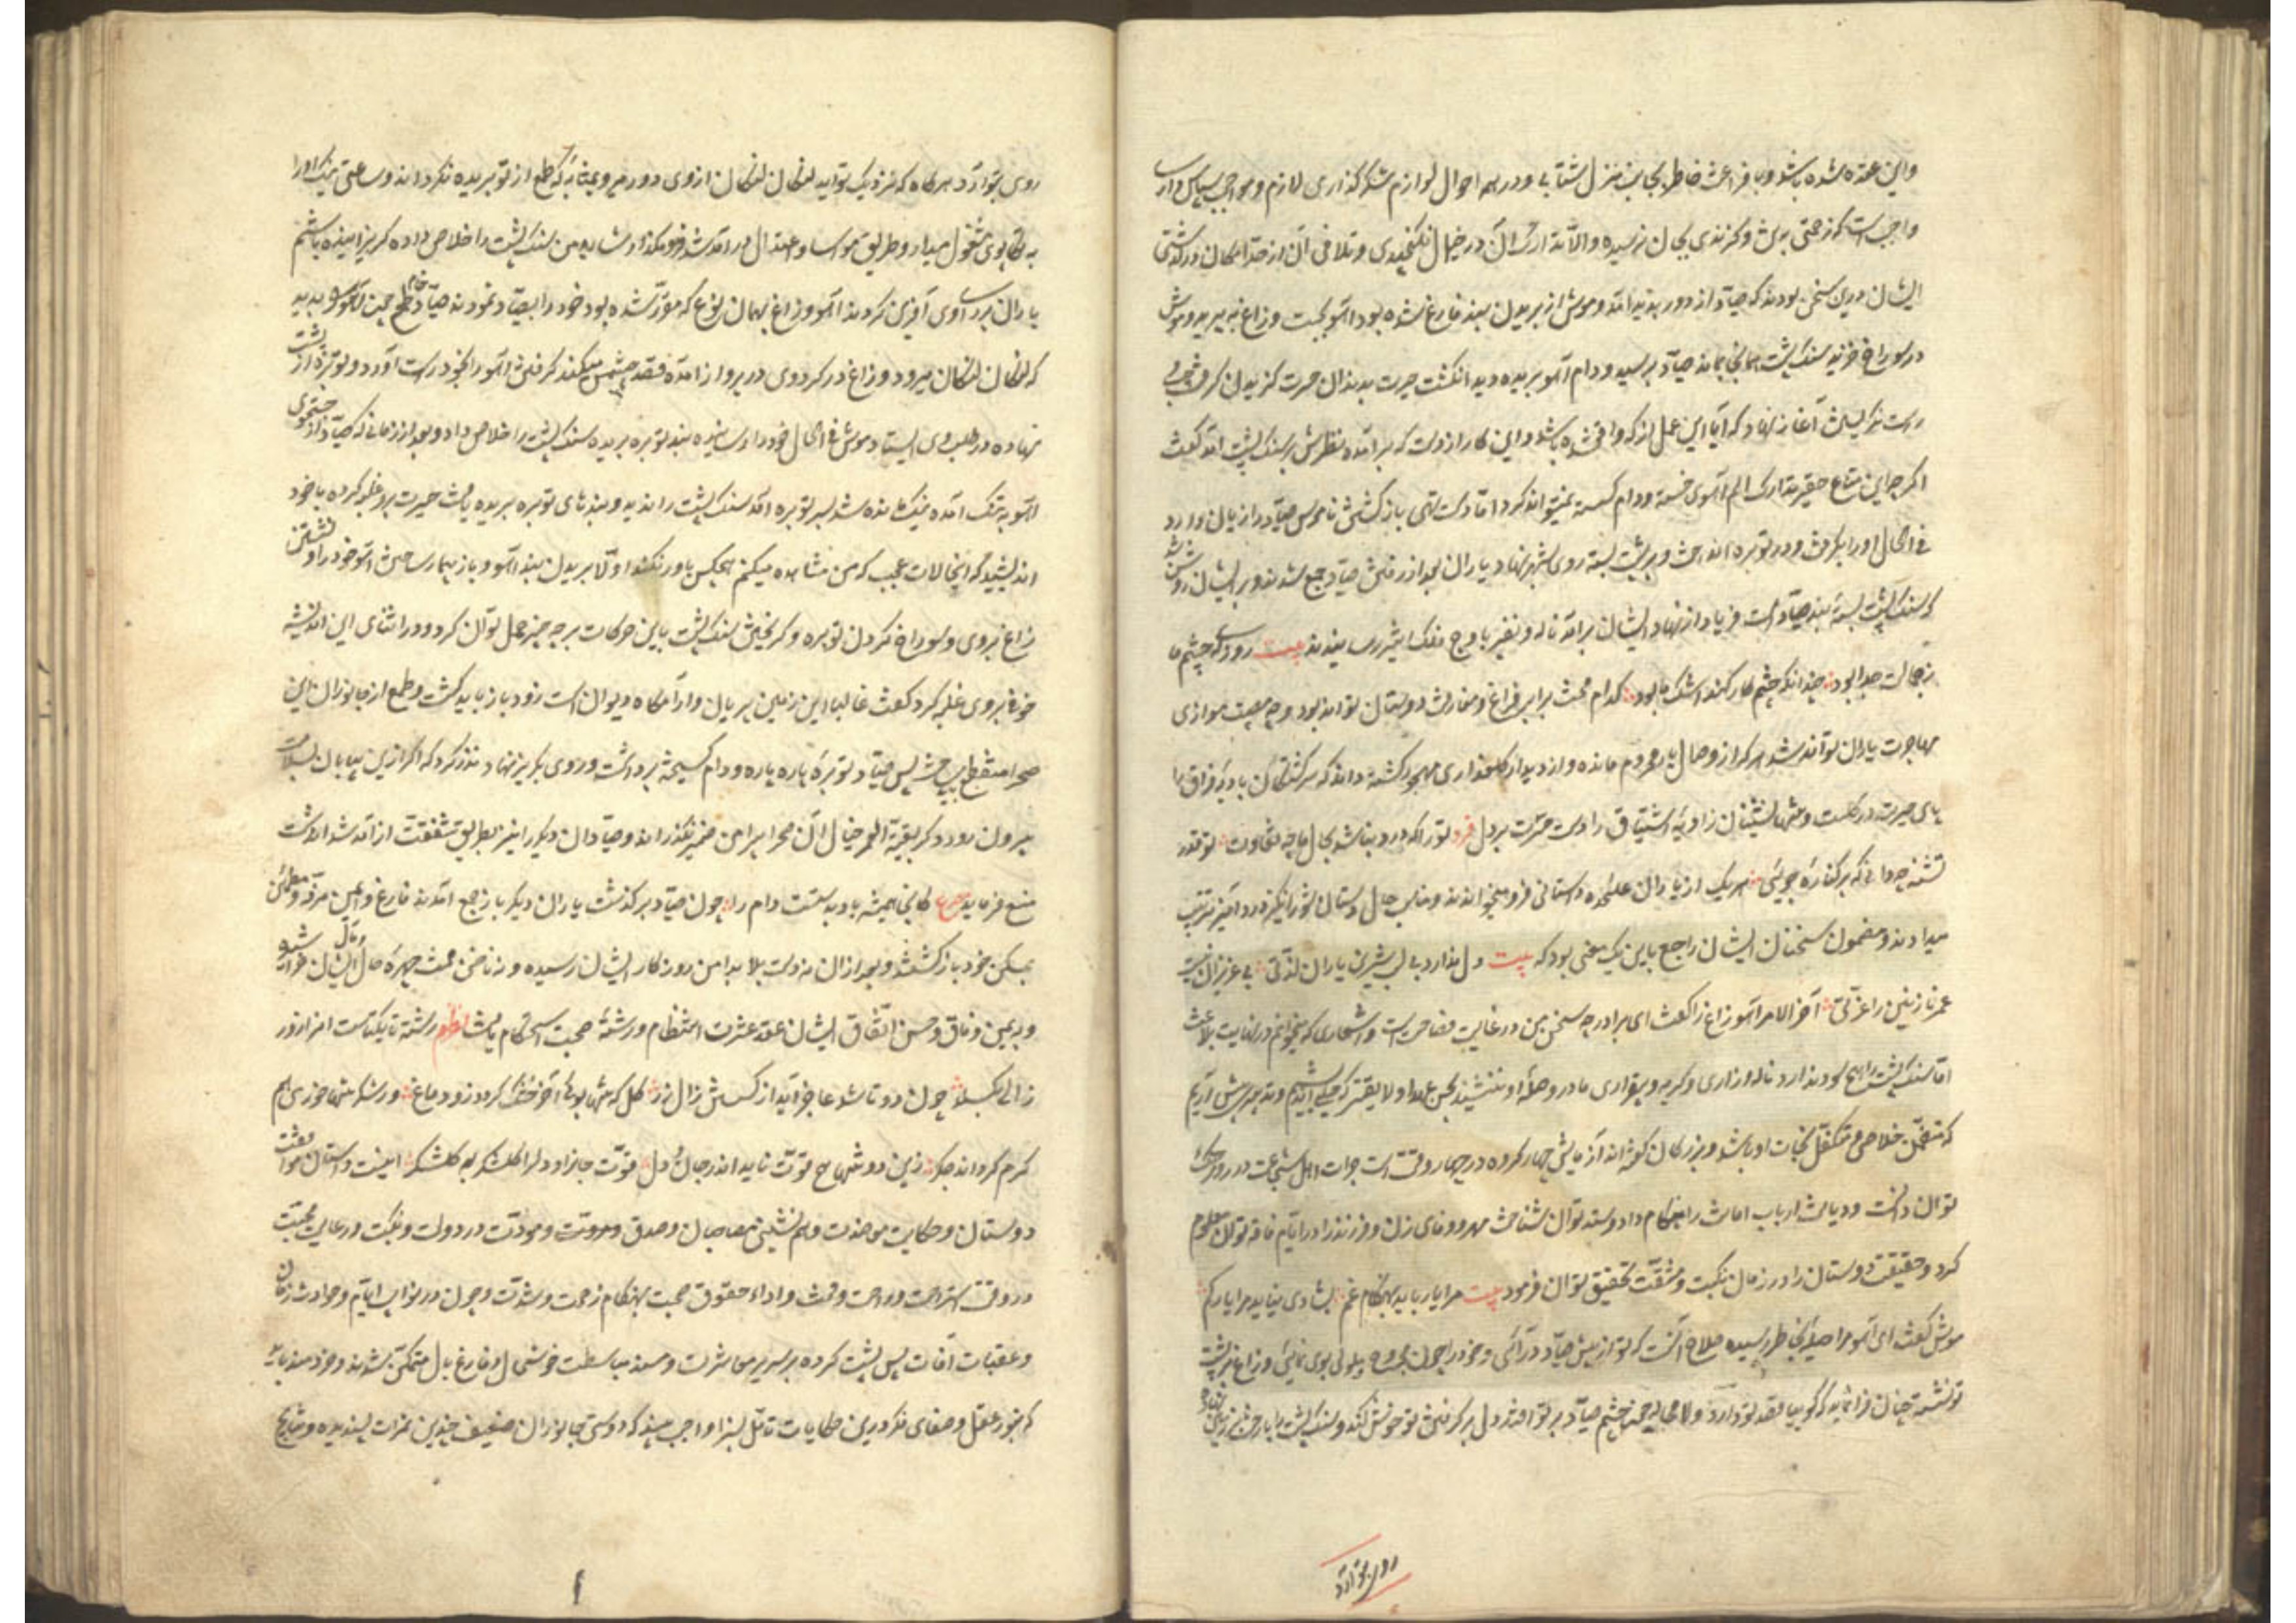 واین عقده شده باشد وبا فراغت خاطر بجانب منزل شتابی ودر همه احوال لوازم شکر گذاری لازم ومواجب سپاس داری
واجبست که زحمتی بوی و گزندی بجان نرسیده والا تدارک آن در خیال نگنجیدی وتلافی آن از حد امکان در گذشتی
ایشان درین سخن بودند که صیاد از دور پدید آمد وموش از بریدن بند فارغ شده بود آهو بجست وزاغ بپرید وموش
در سوراخ خزید سنگ پشت همانجا بماند صیاد برسید ودام آهو بریده دید انگشت حیرت بدندان حسرت گزیدن گرفت وچپ
راست نگریستن آغاز نهاد که آیا این عمل از که واقع شده باشد واین کار از دست که برآمده نظرش بر سنگ پشت آمد گفت
اگرچه این متاع حقیر تدارک الم آهوی خسته ودام گسسته نمیتواند کرد اما دست تهی بازگشتن ناموس صیاد را زیان دارد
فی الحال او را بگرفت ودر توبره انداخت وبر پشت بسته روی بشهر نهاد یاران بعد از رفتن صیاد جمع شدند وبر ایشان روشن شد
که سنگ پشت بسته بند صیاد است فریاد از نهاد ایشان برآمد ناله ونفیر باوج فلک اثیر رسانیدند بیت روزیکه چشم ما
زجمالت جدا بود چندانکه چشم کار کند اشک ما بود کدام محنت برابر فراغ ومفارقت دوستان تواند بود وچه مصیبت موازی
مهاجرت یاران تواند شد هر که از وصال یار محروم مانده واز دیدار گلعذاری مهجور گشته داند که سرگشتگان بادیه فراق را
پای حیرت در گلست وتنها نشینان زاویه اشتیاق را دست حسرت بر دل فرد تو را که درد نباشد بحال ما چه تفاوت تو قدر
تشنه چه دانی که بر کناره جویی هریک از یاران علیحده داستانی فرو میخواندند ومناسب حال دستان شورانگیز درد آمیز ترتیب
میدادند ومضمون سخنان ایشان راجع باین یک معنی بود که بیت دل ندارد بی لب شیرین یاران لذتی بی عزیزان نیست
عمر نازنین را عزتی آخر الامر آهو زاغ را گفت ای برادر چه سخن من در غایت فصاحت است واشعاری که میخوانیم در نهایت بلاغت
اما سنگ پشت را هیچ سود ندارد ناله وزاری وگریه وبیقراری ما در وصله او ننشیند بحسن عهد اولایقتر که حیلتی اندیشیم وتدبیری پیش آریم
که متضمن خلاص ومتکفل نجات او باشد وبزرگان گفته اند آزمایش چهار گروه در چهار وقت است جرات اهل شجاعت در روز جنگ
توان دانست ودیانت ارباب امانت را هنگام داد وستد توان شناخت مهر ووفای زن وفرزند را در ایام فاقه توان معلوم
کرد وحقیقت دوستان را در زمان نکبت ومشقت تحقیق توان فرمود بیت مرا یار باید بهنگام غم بشادی نیاید مرا یار کم
موش گفت ای آهو مرا حیلهٔ بخاطر رسیده صلاح آنست که تو از پیش صیاد در آئی وخود را چون مجروح بوی نمائی وزاغ بر پشت
تو نشسته چنان فرا نماید که گویا قصد تو دارد ولا محاله چون چشم صیاد بر تو افتد دل بر گرفتن تو خوش کند وسنگ پشت را با رخت بر زمین نهاده
روی بتو آرد
روی بتو آرد هرگاه که نزدیک تو آید لنگان لنگان از وی دور میرو نه بمثابهٔ که طمع از تو بریده نگرداند وساعتی نیک او را
به تکاپوی مشغول میدار وطریق مواسا واعتدال در آمد شد فرو مگذار شاید من سنگ پشت را خلاص داده گریزانیده باشم
یاران بر رای وی آفرین کردند آهو وزاغ بهمان نوع که مقرر شده بود خود را بصیاد نمودند صیاد خام طمع چون آهو بدید
که لنگان لنگان میرود وزاغ در گرد وی در پرواز آمده قصد چشمش میکند گرفتن آهو را بخود راست آورد وتوبره از پشت
نهاده در طلب وی ایستاد موش فی الحال خود را رسانیده بند توبره بریده سنگ پشت را خلاص داد وبعد از زمانی که صیاد از جستجوی
آهو به تنگ آمده نیک مانده شد بسر توبره آمد سنگ پشت را ندید وبندهای توبره بریده یافت حیرت برو غلبه کرده با خود
اندیشید که این حالات عجیب که من مشاهده میکنم هیچکس باور نکند اولا بریدن بند آهو وباز بیمار ساختن آهو خود را ونشستن
زاغ بروی وسوراخ کردن توبره وگریختن سنگ پشت باین حرکات بر چه چیز حمل توان کرد ودر اثنای این اندیشه
خوف بروی غلبه کرد گفت غالبا این زمین پریان وآرامگاه دیوان است زود باز باید گشت وطمع از جانوران این
صحرا منقطع باید ساخت پس صیاد توبرهٔ پاره پاره ودام گسیخته برداشت وروی بگریز نهاد ونذر کرد که اگر ازین بیابان بسلامت
بیرون رود دیگر بقیة العمر خیال آن صحرا پیرامن ضمیر نگذراند وصیادان دیگر را نیز بطریق شفقت از آمد شد آن دشت
منع فرماید مصرع کانجا همیشه باد بدستست دام را چون صیاد برگذشت یاران دیگر باز جمع آمدند فارغ وایمن ومرفه ومطمئن
بمسکن خود باز گشتند وبعد از آن نه دست بلا بدامن روزگار ایشان رسیده ونه ناخن محنت چهرهٔ حال ومآل ایشان خراشید
وبیمن وفاق وحسن اتفاق ایشان عقد عشرت انتظام ورشتهٔ صحبت استحکام یافت نظم رشته تا یکتاست آن را زور
زالی بگسلد چون دو تا شد عاجز آید از گسستن زال زر گل که تنها بوئی آخر خشک گردد زو دماغ ور شکر تنها خوری هم
گرم گرداند جگر زین دو تنها هیچ قوت ناید اندر جان ودل قوت جانرا ودلرا گلشکر به گلشکر اینست داستان موافقت
دوستان وحکایت معاضدت وهم نشینی مصاحبان وصدق ومروت ومودت در دولت ونکبت ورعایت محبت
در وقت استراحت وراحت ومحنت واداء حقوق صحبت بهنگام زحمت وشدت وچون در نوایب ایام وحوادث زمان
وعقبات آفات پس پشت کرده بر سریر معاشرت ومسند مباسطت خوشحال وفارغ بال متمکن شدند وخردمند باید
که بنور عقل وصفای فکر درین حکایات تامل بسزا واجب بیند که دوستی جانوران ضعیف چندین ثمرات پسندیده ونتایج